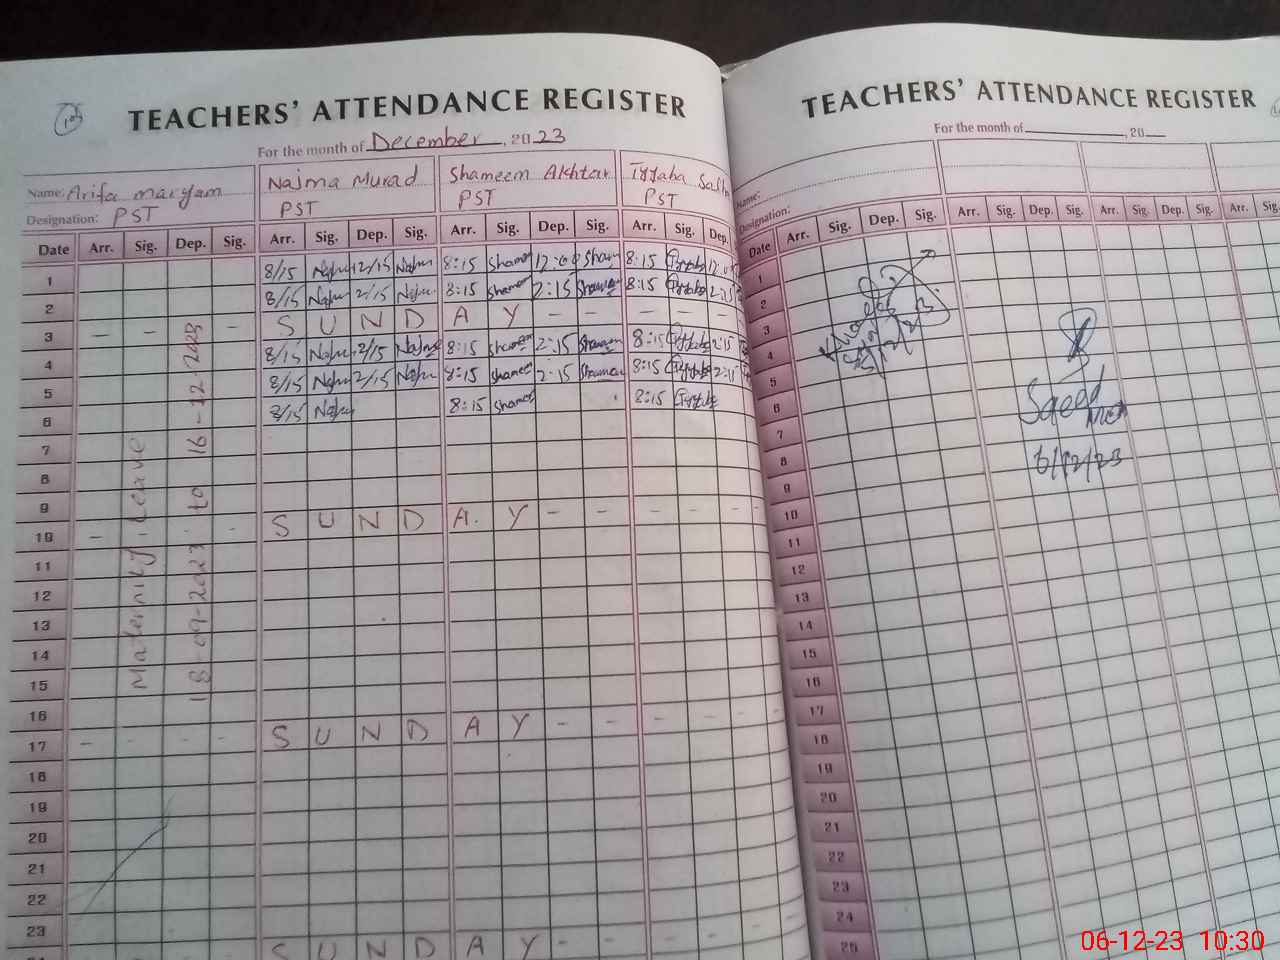 103
TEACHERS' ATTENDANCE REGISTER
For the month of December, 2023
Name: Arifa maryam Najma Murad Shameem Akhtar Tyyaba
Designation: PST PST PST PST
Date Arr. Sig. Dep. Sig. Arr. Sig. Dep. Sig. Arr. Sig. Dep. Sig. Arr. Sig. Dep.
1 8/15 Najm 12/15 Najm 8:15 Shamee 12:00 Sham 8:15 Tyyaba
2 8/15 Najm 2/15 Najm 8:15 Shamee 2:15 Shamee 8:15 Tyyaba 2:15
3 - - - S U N D A Y - - - - -
4 8/15 Najm 2/15 Najm 8:15 Shamee 2:15 Shamee 8:15 Tyyaba 2:15
5 8/15 Najm 2/15 Najm 8:15 Shamee 2:15 Shamee 8:15 Tyyaba 2:15
6 8/15 Najm 8:15 Shamee 8:15 Tyyaba
7
8
9
10 - - S U N D A. Y - - - - -
11
12
13
14
15
16
17 - - - - S U N D A Y - - - - -
18
19
20
21
22
23
S U N D A Y - - - -
Maternity leave
18-09-2023 to 16-12-2023
TEACHERS' ATTENDANCE REGISTER
For the month of , 20
Name:
Designation:
Date Arr. Sig. Dep. Sig. Arr. Sig. Dep. Sig. Arr. Sig. Dep. Sig. Arr. Sig.
1
2
3
4
5
6
7
8
9
10
11
12
13
14
15
16
17
18
19
20
21
22
23
24
25
Saeed
6/12/23
06-12-23 10:30